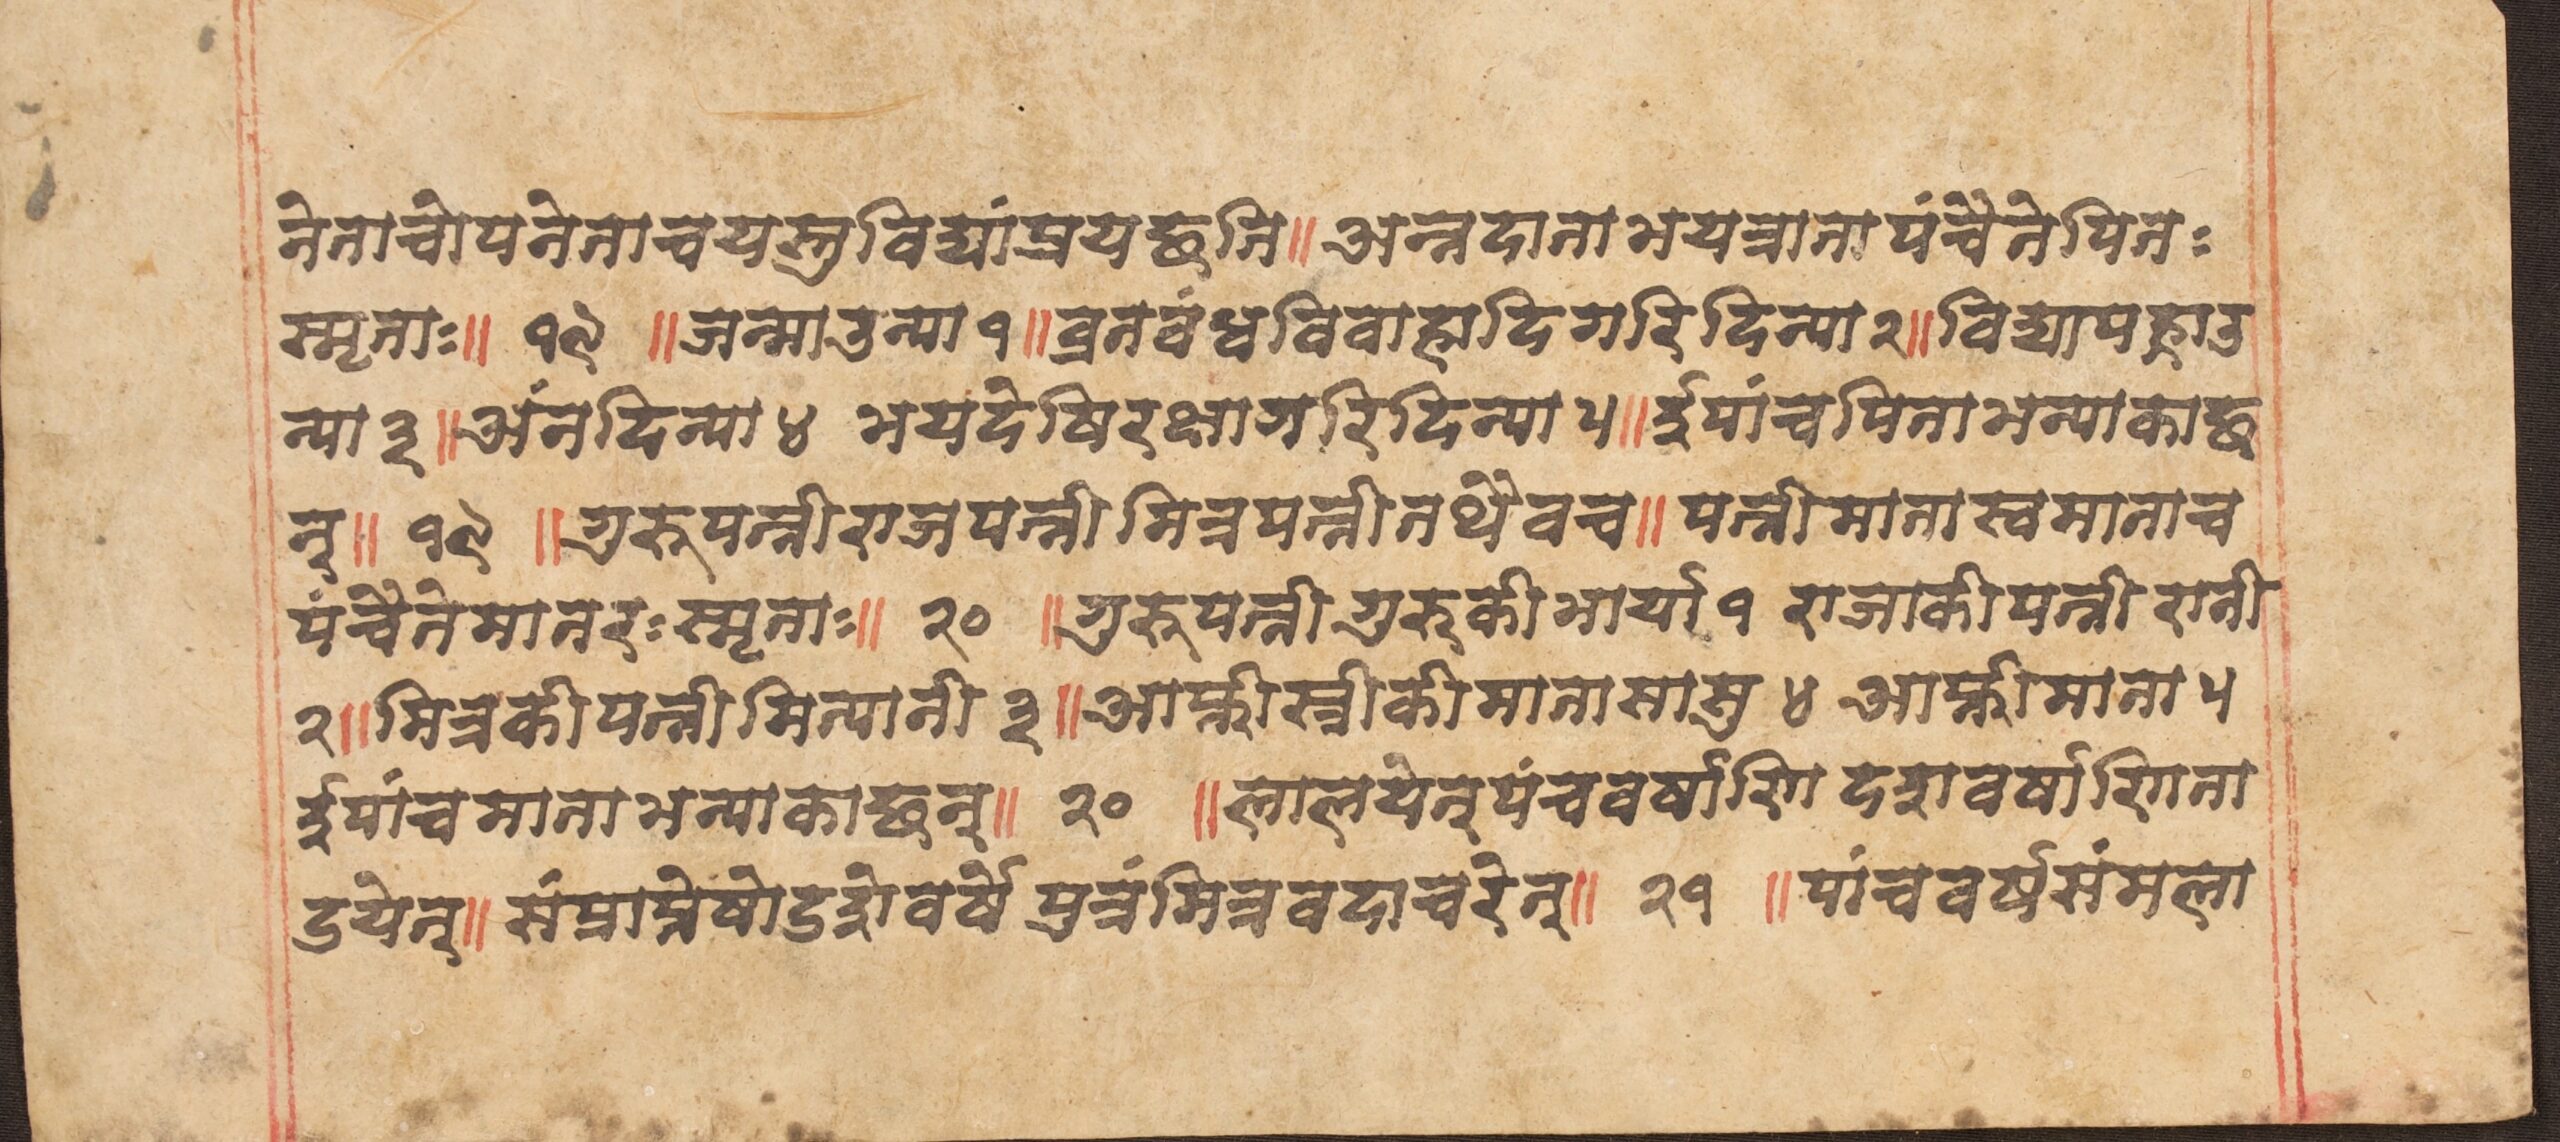 जनेताचोपनेताचयस्तुविद्यांप्रयच्छति॥ अन्नदाताभयत्रातापंचैतेपितः
स्मृताः॥ १९ ॥जन्माउन्या१॥व्रतवंधविवाहादिगरिदिन्या२॥विद्यापह्राउ
न्या३॥अंनदिन्या४ भयदेषिरक्षागरिदिन्या५॥ईपांचपिताभन्याकाछ
न्॥ १९ ॥गुरुपत्नीराजपत्नीमित्रपत्नीतथैवच॥ पत्नीमातास्वमाताच
पंचैतेमातरःस्मृताः॥ २० ॥गुरुपत्नीगुरुकीभार्या१ राजाकीपत्नीरानी
२॥मित्रकीपत्नीमित्यानी३॥आफ्नीस्त्रीकीमातासासु४ आफ्नीमाता५
ईपांचमाताभन्याकाछन्॥ २० ॥लालयेत्पंचवर्षाणि दशवर्षाणिता
डयेत्॥ संप्राप्तेषोडशेवर्षे पुत्रंमित्रवदाचरेत्॥ २१ ॥पांचवर्षसंमला